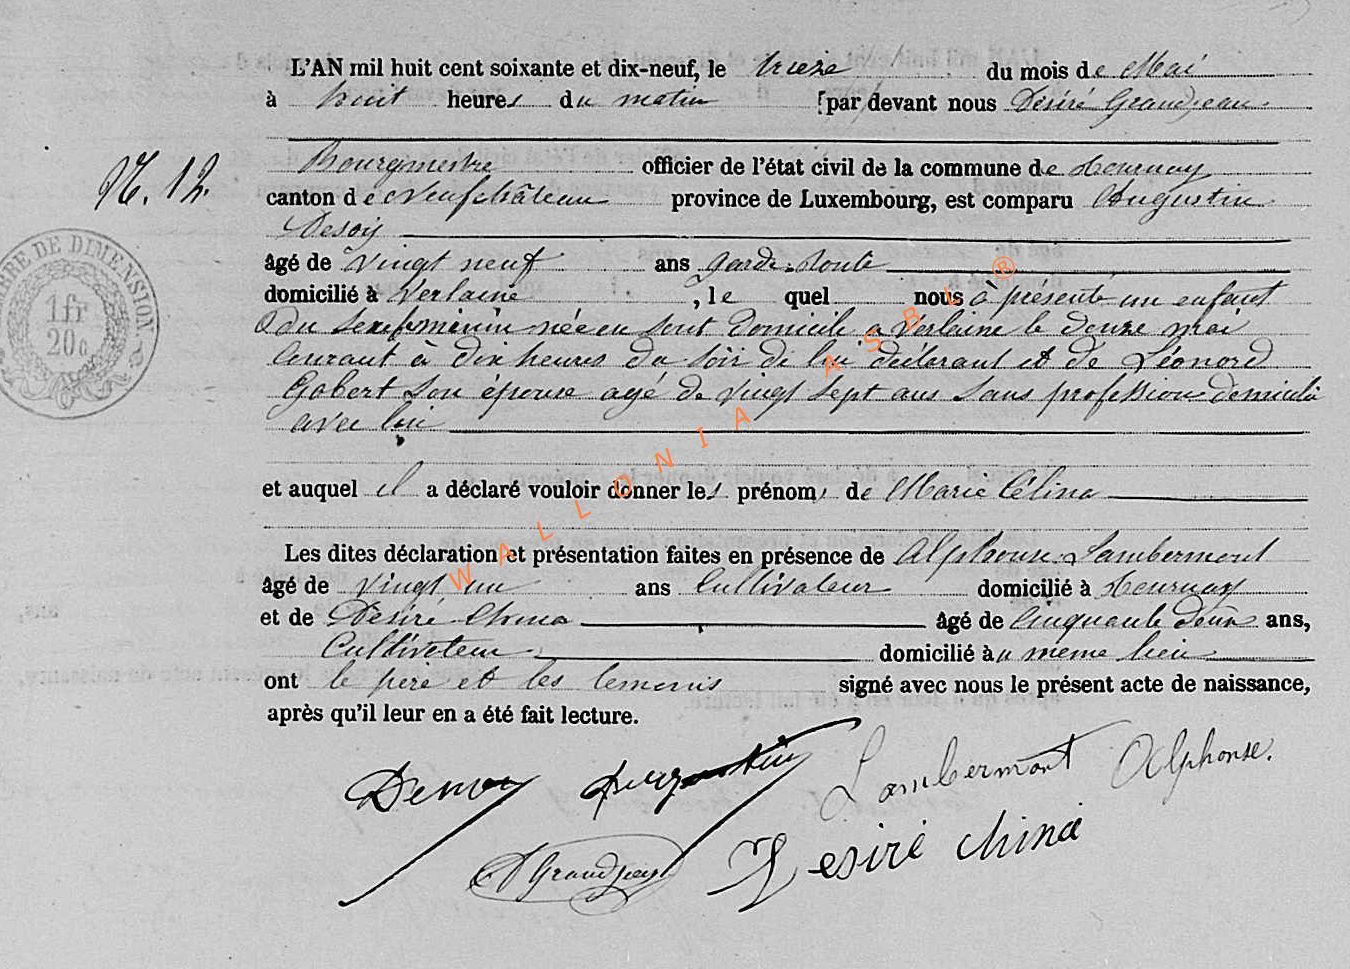 L'AN mil huit cent soixante et dix-neuf, le treize du mois de Mai
à huit heures du matin par devant nous Désiré Grandjean
Bourgmestre officier de l'état civil de la commune de Tournay
N. 12.
canton de Neufchâteau province de Luxembourg, est comparu Augustin
Desoy
âgé de vingt neuf ans garde-route
domicilié à Verlaine, lequel nous à présenté un enfant
du sexe féminin née en sont domicile a Verlaine le douze mai
Courant à dix heures du soir de lui déclarant et de Léonord
Gobert son épouse agé de vingt sept ans sans profession domicilié
avec lui
et auquel il a déclaré vouloir donner les prénoms de Marie Célina
Les dites déclaration et présentation faites en présence de Alphonse Lambermont
âgé de vingt un ans Cultivateur domicilié à Tournay
et de Désiré China âgé de Cinquante deux ans,
Cultivateur domicilié au meme lieu
ont le père et les temoins signé avec nous le présent acte de naissance,
après qu'il leur en a été fait lecture.
Augustin Lambermont Alphonse.
D Grandjean Desiré China
DIMENSION
1 fr
20 c
WALLONIA ASBL ®